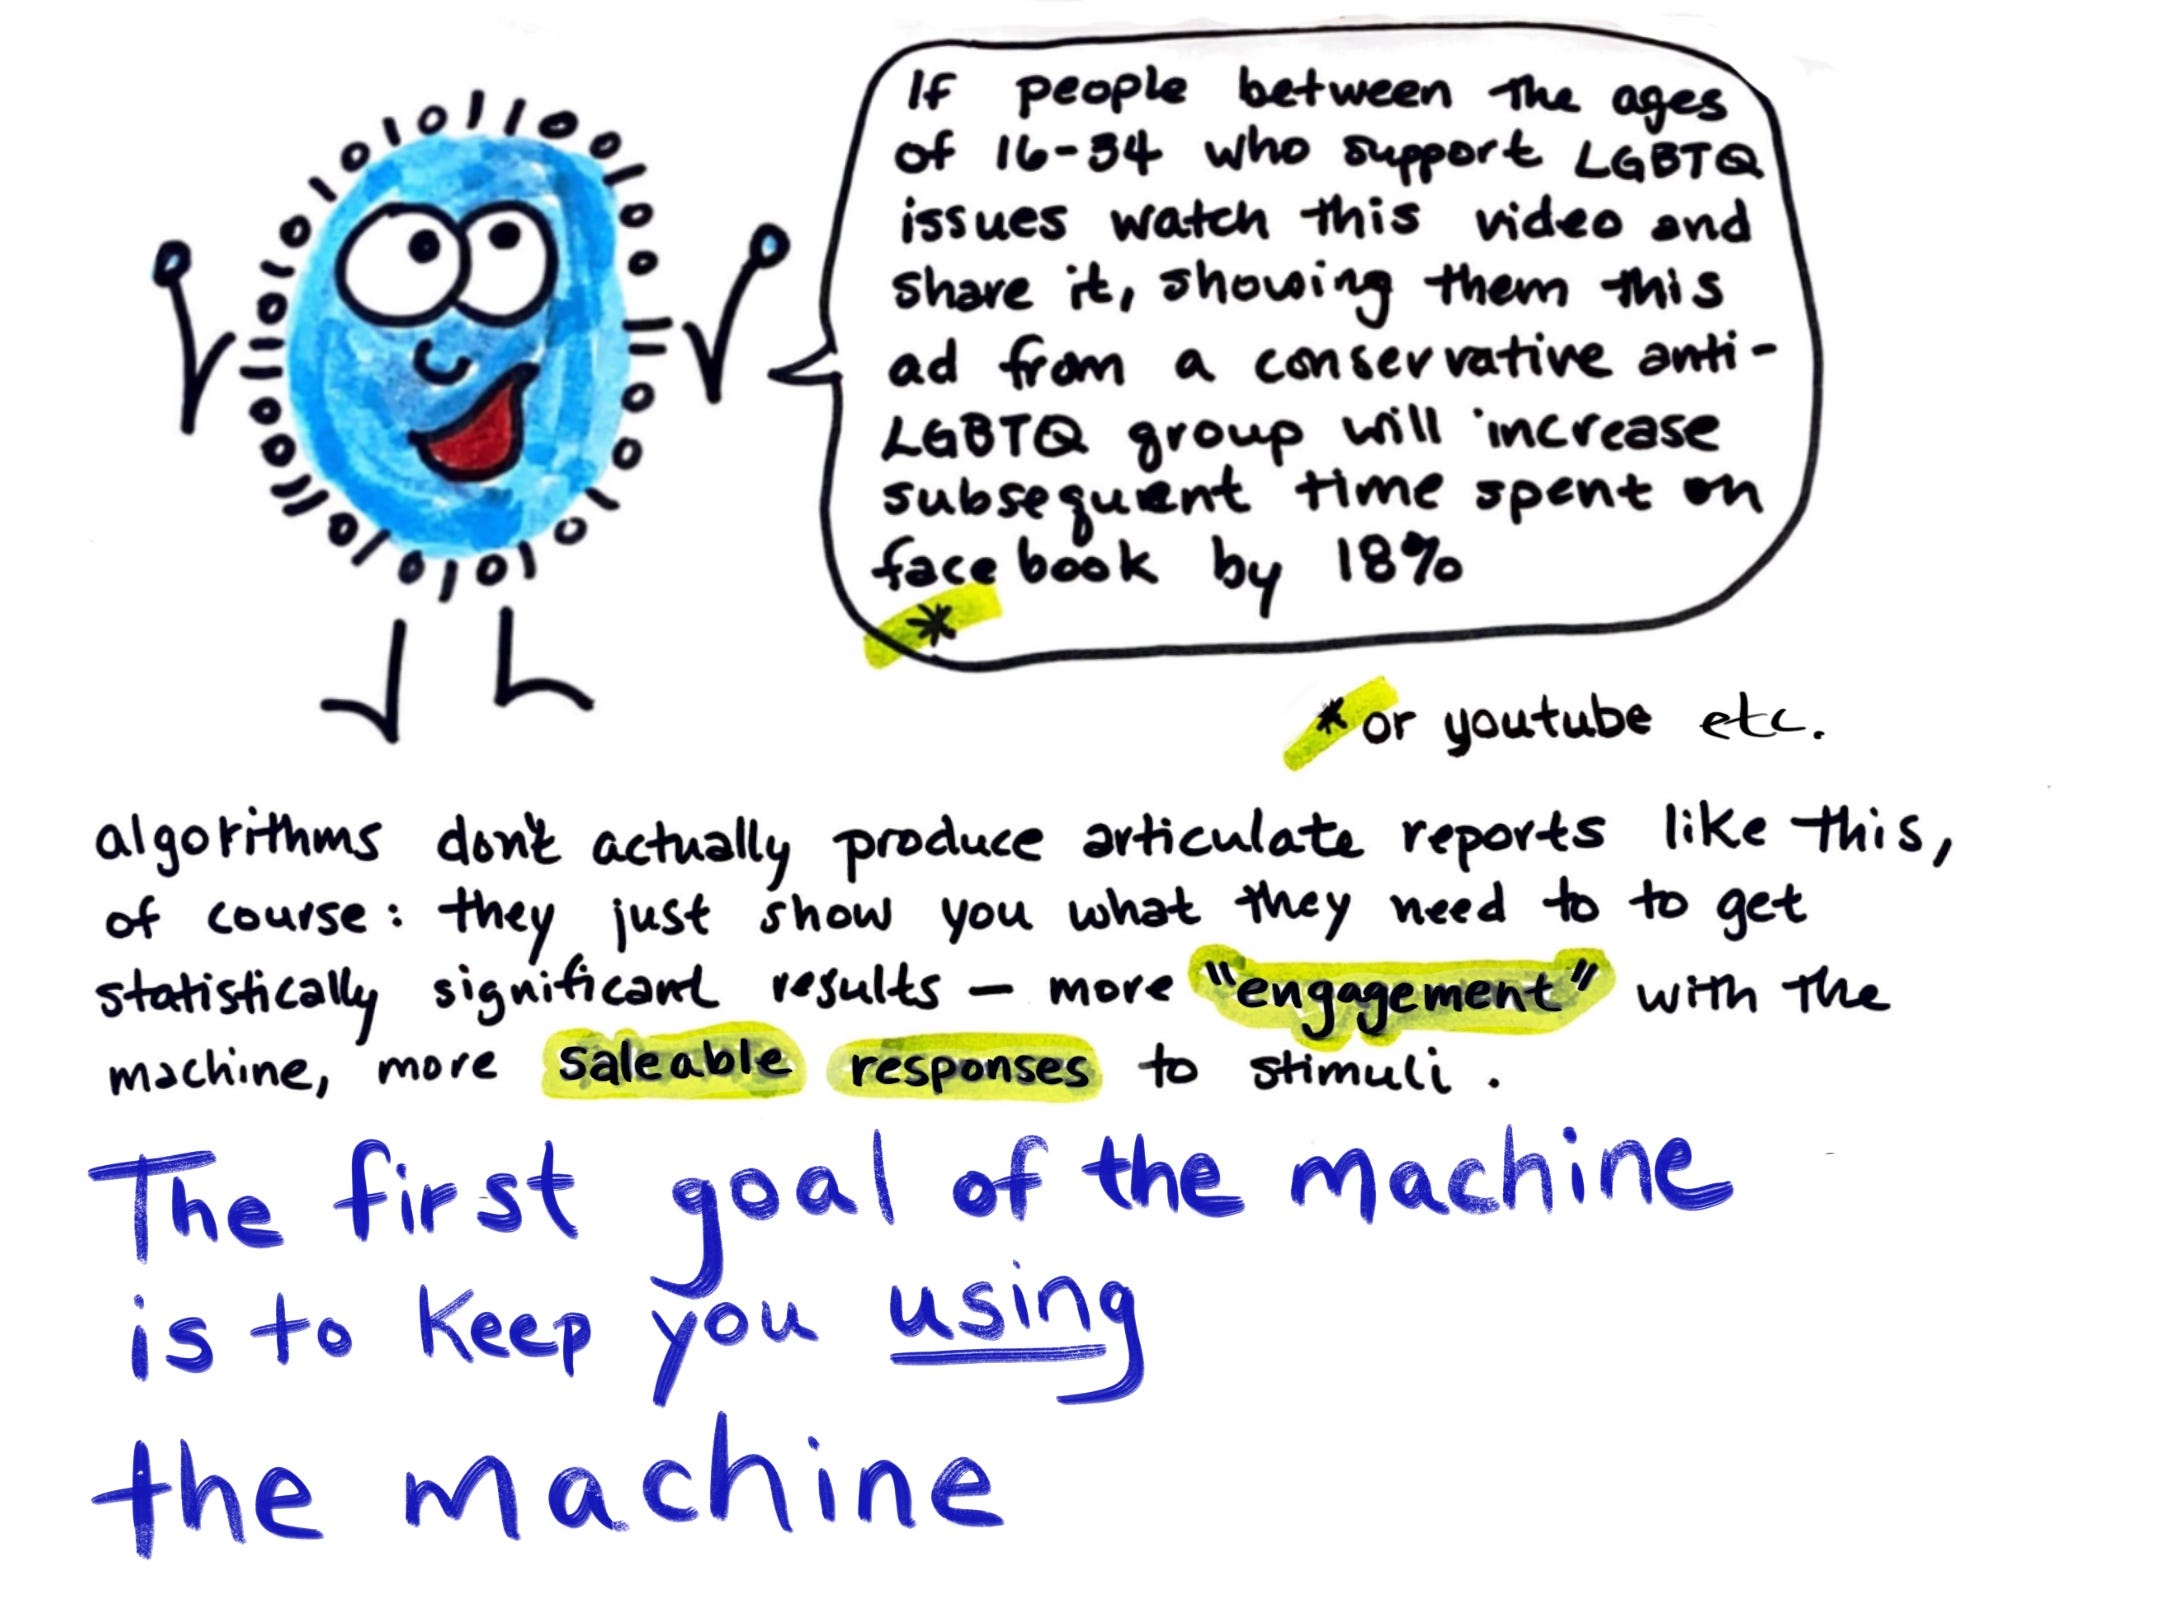 If people between the ages
of 16-34 who support LGBTQ
issues watch this video and
share it, showing them this
ad from a conservative anti-
LGBTQ group will increase
subsequent time spent on
facebook by 18%
*
* or youtube etc.
algorithms don't actually produce articulate reports like this,
of course: they just show you what they need to to get
statistically significant results — more "engagement" with the
machine, more saleable responses to stimuli.
The first goal of the machine
is to keep you using
the machine